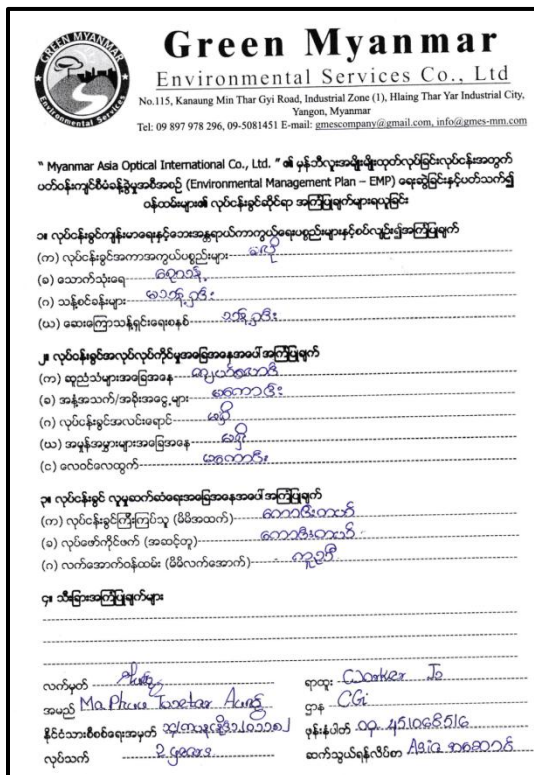 GREEN MYANMAR
Environmental Services
Green Myanmar
Environmental Services Co., Ltd
No.115, Kanaung Min Thar Gyi Road, Industrial Zone (1), Hlaing Thar Yar Industrial City,
Yangon, Myanmar
Tel: 09 897 978 296, 09-5081451 E-mail: gmescompany@gmail.com, info@gmes-mm.com
" Myanmar Asia Optical International Co., Ltd. " ၏ မှန်ဘီလူးအမျိုးမျိုးထုတ်လုပ်ခြင်းလုပ်ငန်းအတွက်
ပတ်ဝန်းကျင်စီမံခန့်ခွဲမှုအစီအစဉ် (Environmental Management Plan – EMP) ရေးဆွဲခြင်းနှင့်ပတ်သက်၍
ဝန်ထမ်းများ၏ လုပ်ငန်းခွင်ဆိုင်ရာ အကြံပြုချက်များရယူခြင်း
၁။ လုပ်ငန်းခွင်ကျန်းမာရေးနှင့်ဘေးအန္တရာယ်ကာကွယ်ရေးပစ္စည်းများနှင့်စပ်လျဉ်း၍အကြံပြုချက်
(က) လုပ်ငန်းခွင်အကာအကွယ်ပစ္စည်းများ
(ခ) သောက်သုံးရေ
(ဂ) သန့်စင်ခန်းများ
(ဃ) ဆေးကြောသန့်ရှင်းရေးစနစ်
၂။ လုပ်ငန်းခွင်အလုပ်လုပ်ကိုင်မှုအခြေအနေအပေါ်အကြံပြုချက်
(က) ဆူညံသံများအခြေအနေ
(ခ) အနံ့အသက်/အခိုးအငွေ့များ မကောင်း
(ဂ) လုပ်ငန်းခွင်အလင်းရောင် မရှိ
(ဃ) အမှုန်အမွှားများအခြေအနေ မရှိ
(င) လေဝင်လေထွက် မကောင်း
၃။ လုပ်ငန်းခွင် လူမှုဆက်ဆံရေးအခြေအနေအပေါ်အကြံပြုချက်
(က) လုပ်ငန်းခွင်ကြီးကြပ်သူ (မိမိအထက်) ကောင်းတယ်
(ခ) လုပ်ဖော်ကိုင်ဖက် (အဆင့်တူ) ကောင်းတယ်
(ဂ) လက်အောက်ဝန်ထမ်း (မိမိလက်အောက်) ကူညီ
၄။ သီးခြားအကြံပြုချက်များ
လက်မှတ် ရာထူး Worker
အမည် Ma Phuu Aung ဌာန CGi
နိုင်ငံသားစိစစ်ရေးအမှတ် ဖုန်းနံပါတ် 09. 451068516
လုပ်သက် 2 years ဆက်သွယ်ရန်လိပ်စာ Asia